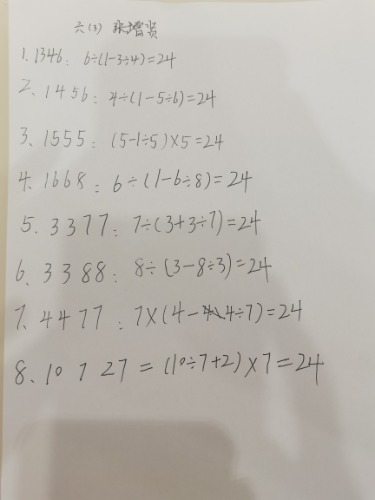 六(3) 张增贤
1. 1346: 6÷(1-3÷4)=24
2、1456: 4÷(1-5÷6)=24
3、1555: (5-1÷5)×5=24
4、1668: 6÷(1-6÷8)=24
5、3377: 7÷(3+3÷7)=24
6、3388: 8÷(3-8÷3)=24
7、4477: 7×(4-4÷7)=24
8、10 7 27 = (10÷7+2)×7=24